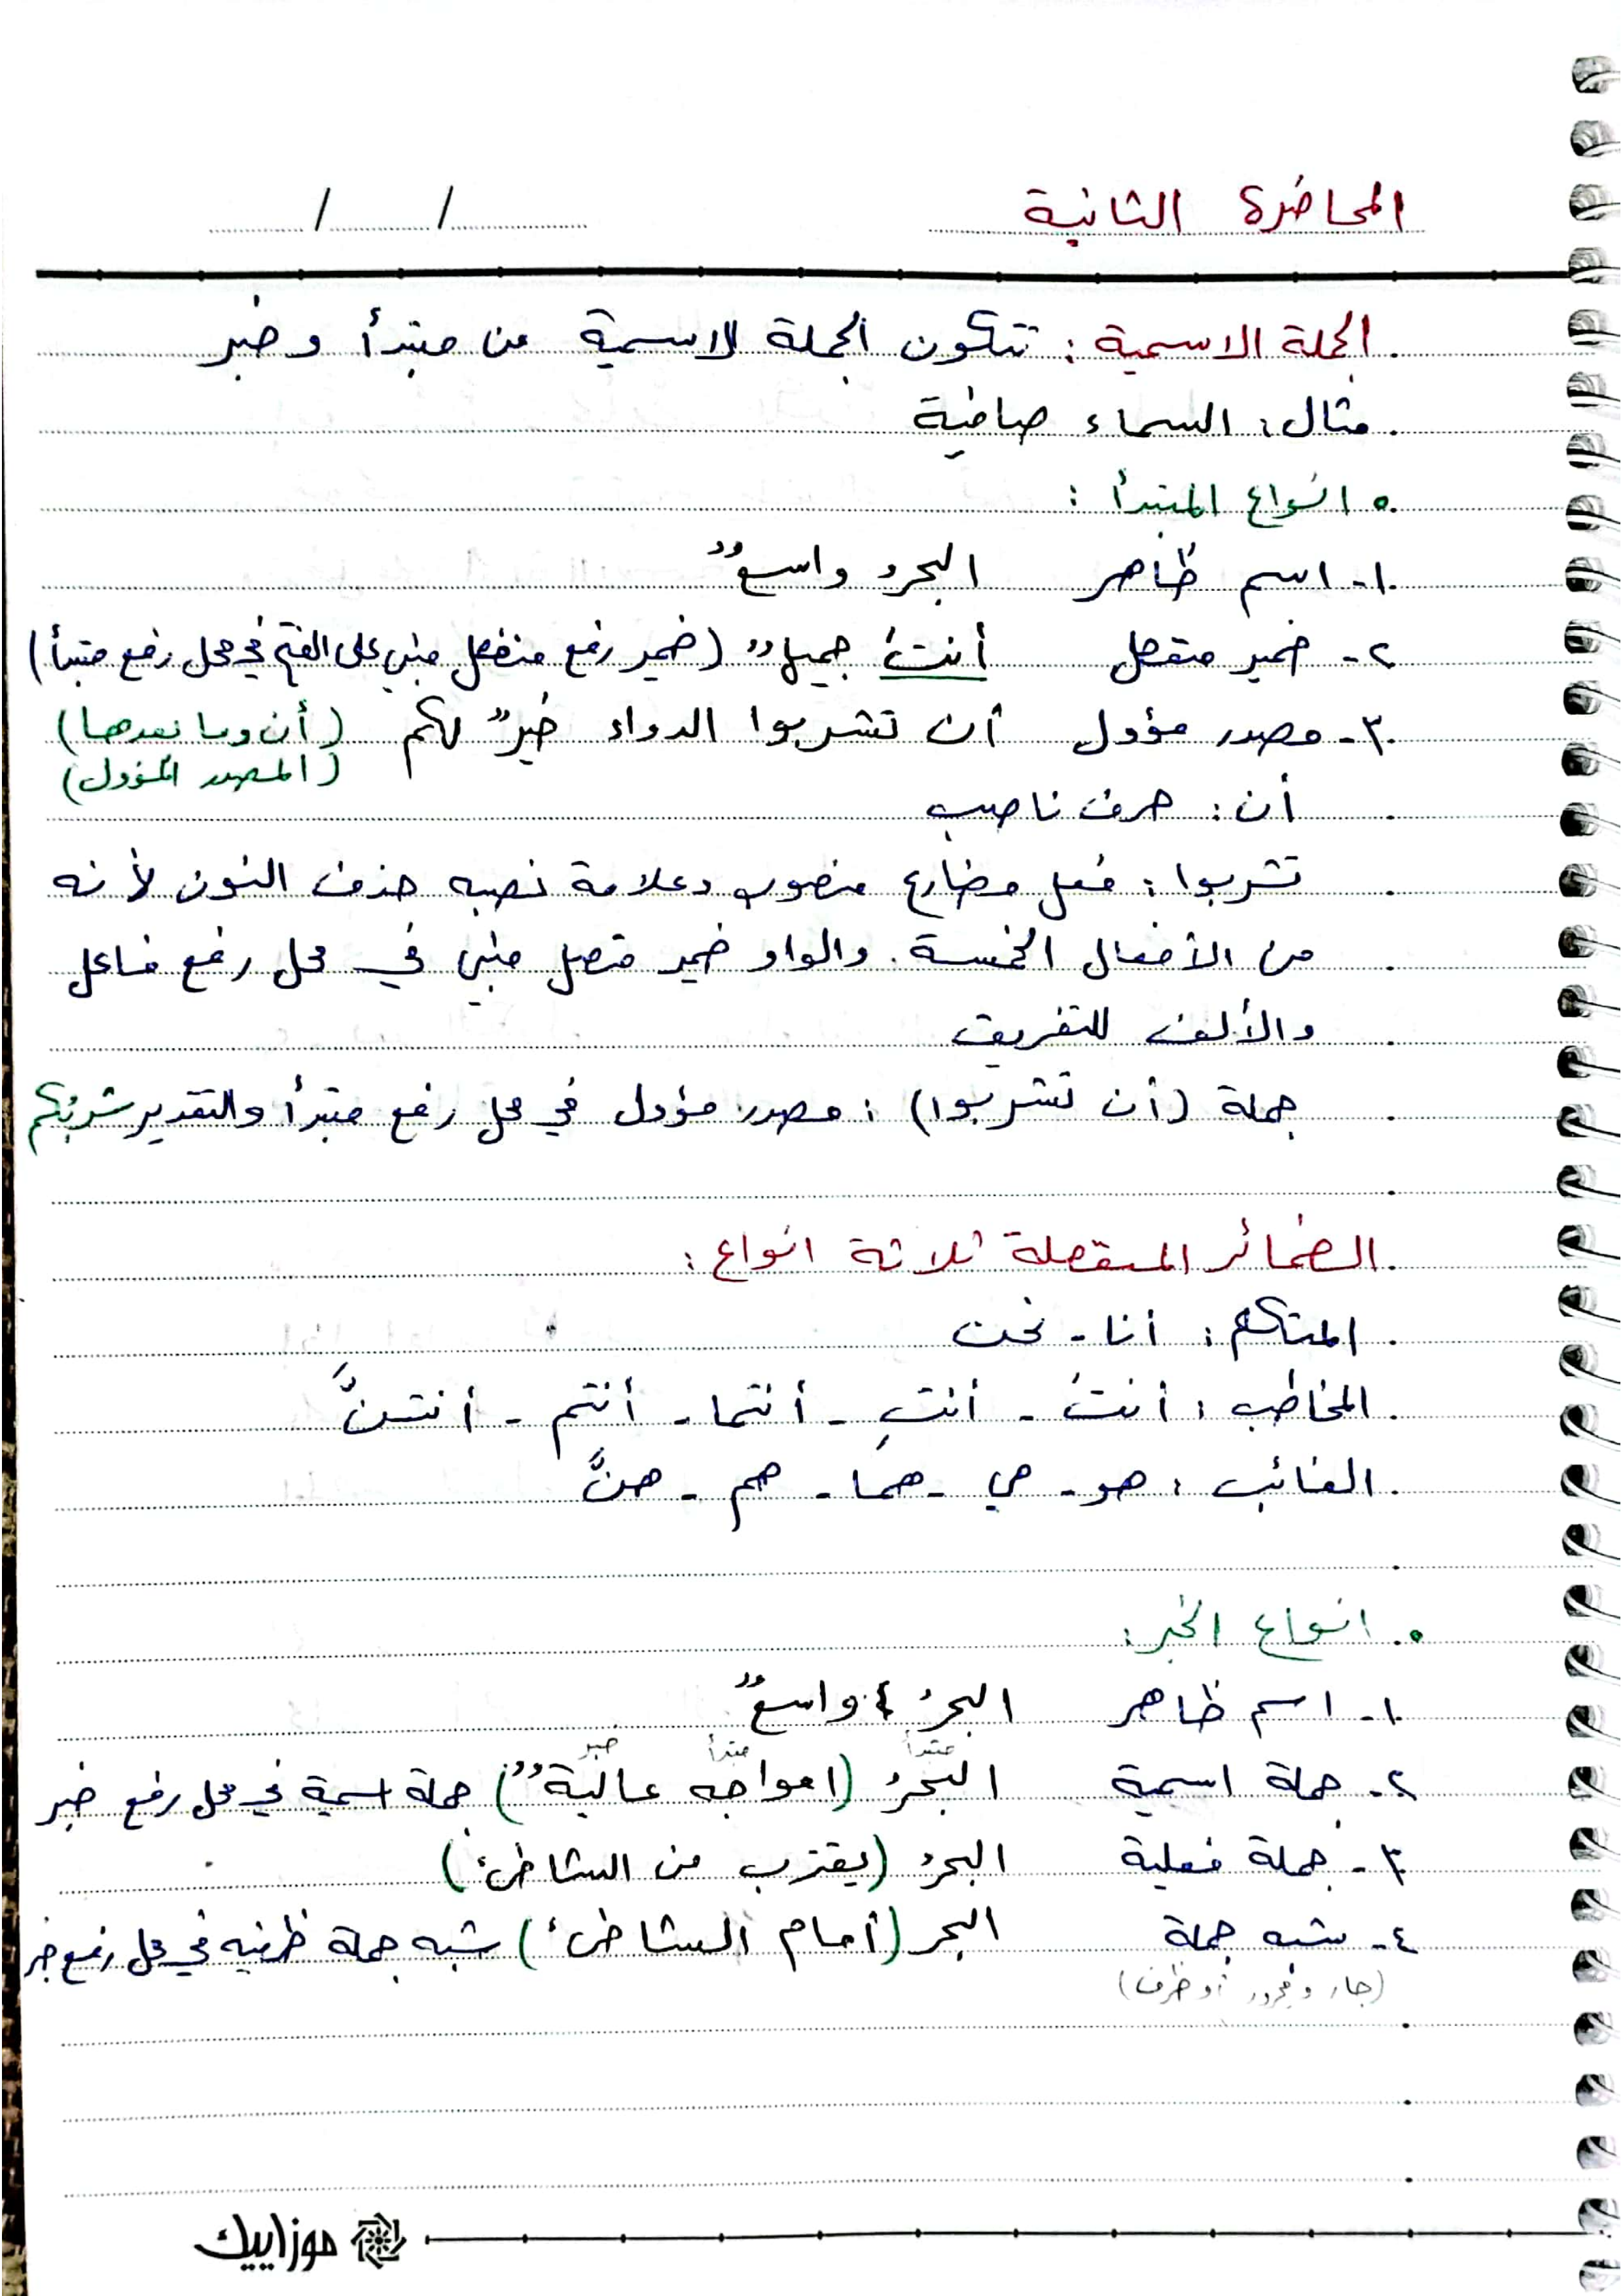 المحاضرة الثانية
/ /
الجملة الاسمية : تتكون الجملة الاسمية من مبتدأ و خبر
مثال : السماء صافية
انواع المبتدأ :
١- اسم ظاهر البحرُ واسعٌ
٢- ضمير منفصل أنتَ جميلٌ (ضمير رفع منفصل مبني على الفتح في محل رفع مبتدأ)
٣- مصدر مؤول أن تشربوا الدواء خيرٌ لكم (أن وما بعدها)
(المصدر المؤول)
أن : حرف ناصب
تشربوا : فعل مضارع منصوب وعلامة نصبه حذف النون لأنه
من الأفعال الخمسة . والواو ضمير متصل مبني في محل رفع فاعل
والألف للتفريق
جملة (أن تشربوا) : مصدر مؤول في محل رفع مبتدأ والتقدير شربُكم
الضمائر المنفصلة ثلاثة انواع :
المتكلم : أنا - نحن
المخاطب : أنتَ - أنتِ - أنتما - أنتم - أنتنَّ
الغائب : هو - هي - هما - هم - هنَّ
انواع الخبر :
١- اسم ظاهر البحرُ واسعٌ
مبتدأ مبتدأ خبر
٢- جملة اسمية البحرُ (امواجه عاليةٌ) جملة اسمية في محل رفع خبر
٣- جملة فعلية البحرُ (يقترب من الشاطئ)
٤- شبه جملة البحر (أمام الشاطئ) شبه جملة ظرفيه في محل رفع خبر
(جار ومجرور أو ظرف)
موزاييك